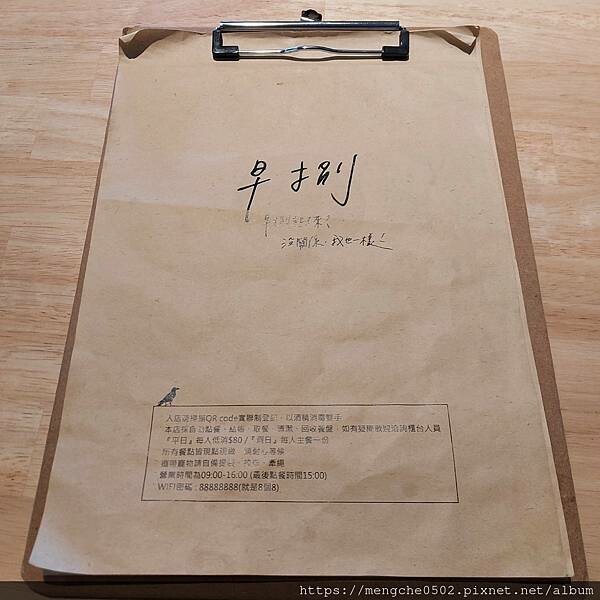 早捌
早捌起床?
沒關係,我也一樣!
入店請掃描QR code實聯制登記,以酒精消毒雙手
本店採自助點餐、結帳、取餐、清潔、回收餐盤,如有疑問歡迎洽詢櫃台人員
『平日』每人低消$80 /『假日』每人主餐一份
所有餐點皆現點現做,請耐心等候
攜帶寵物請自備提袋、推車、牽繩
營業時間為09:00-16:00 (最後點餐時間15:00)
WIFI密碼 : 88888888(就是8個8)
https://mengche0502.pixnet.net/album